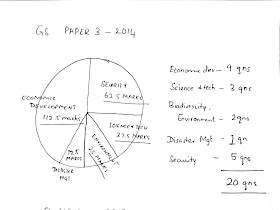 GS PAPER 3 - 2014
SECURITY
62.5 MARKS
ECONOMIC
DEVELOPMENT
112.5 MARKS
SCIENCE & TECH
37.5 MARKS
ENVIRONMENT
25 MARKS
12.5
MARKS
DISASTER
MGT
Economic dev - 9 qns
Science & tech - 3 qns
Biodiversity,
Environment - 2 qns
Disaster Mgt - 1 qn
Security - 5 qns
20 qns